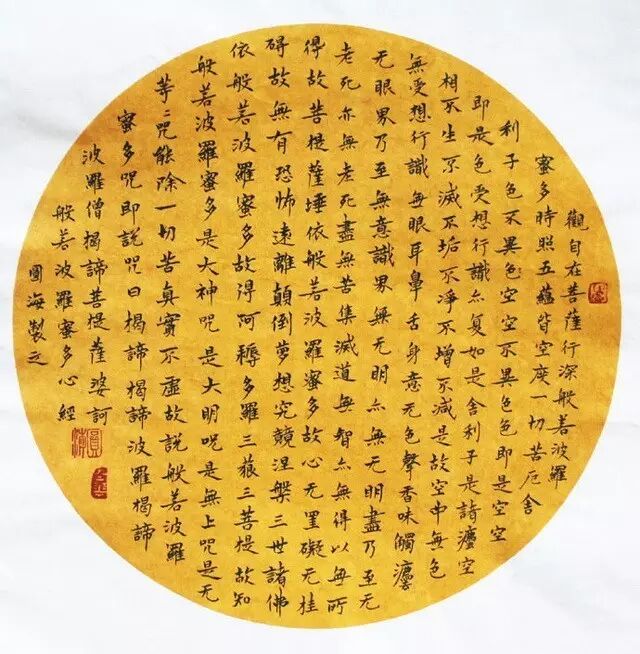 觀自在菩薩行深般若波羅
蜜多時照五蘊皆空度一切苦厄舍
利子色不異色空空不異色色即是空空
即是色受想行識亦复如是舍利子是諸灋空
相不生不滅不垢不淨不增不減是故空中無色
無受想行識毎眼耳鼻舌身意无色聲香味觸灋
无眼界乃至無意識界無无明亦無无明盡乃至无
老死亦無老死盡無苦集滅道無智亦無得以無所
得故菩提薩埵依般若波羅蜜多故心无罣礙无挂
碍故無有恐怖遠離顛倒夢想究竟涅槃三世諸佛
依般若波羅蜜多故得阿耨多羅三藐三菩提故知
般若波羅蜜多是大神咒是大明咒是無上咒是无
等二咒能除一切苦真實不虛故說般若波羅
蜜多咒即說咒曰揭諦揭諦波羅揭諦
波羅僧揭諦菩提薩婆訶
般若波羅蜜多心經
圓海製之